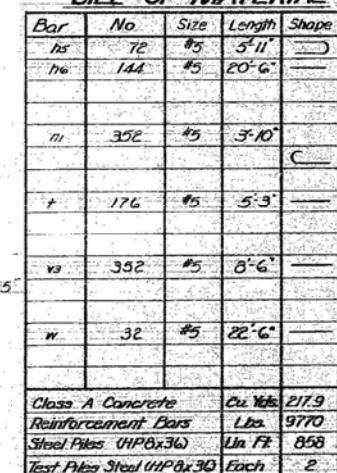 BILL OF MATERIAL
Bar No. Size Length Shape
h5 72 #5 5'-11"
h6 144 #5 20'-6"
n1 352 #5 3'-10"
t 176 #5 5'-3"
v3 352 #5 8'-6"
w 32 #5 22'-6"
Class A Concrete Cu. Yds. 217.9
Reinforcement Bars Lbs. 9770
Steel Piles (HP8x36) Lin. Ft. 858
Test Piles Steel (HP8x36) Each 2
5